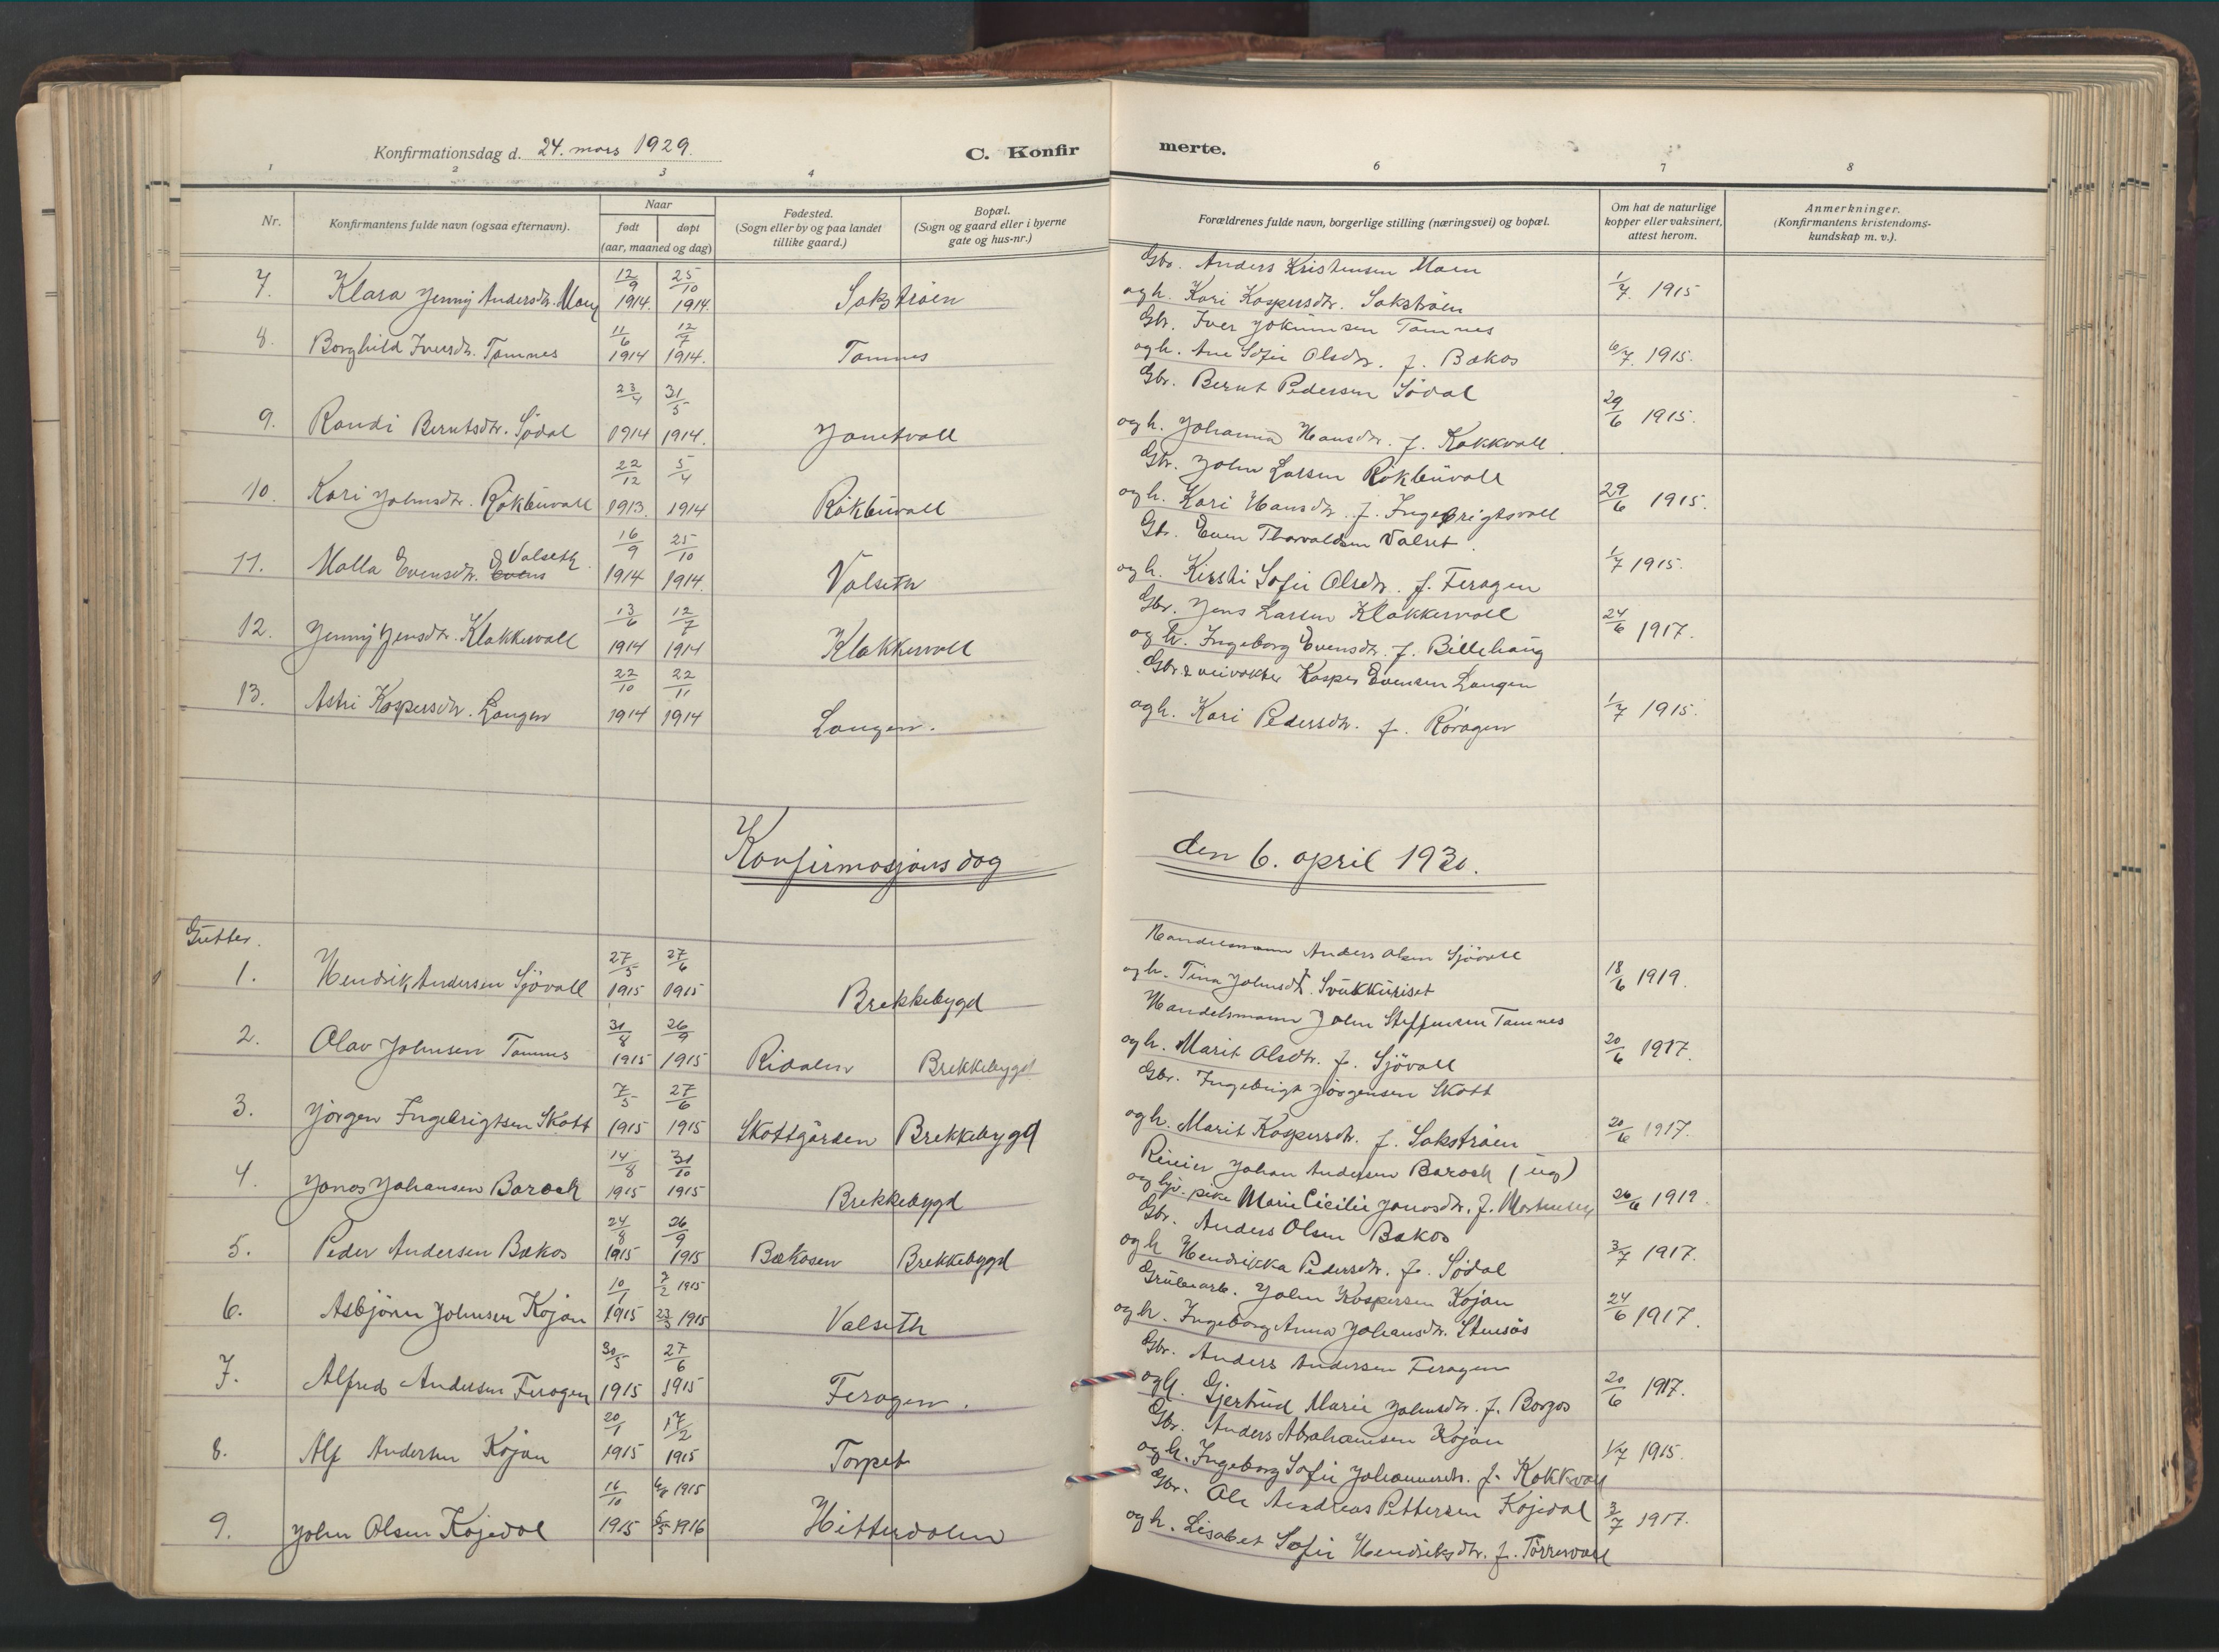 Konfirmationsdag d. 24. mars 1929.
C. Konfirmerte.
1 2 3 4 6 7 8
Nr.
Konfirmantens fulde navn (ogsaa efternavn).
Naar
født døpt
(aar, maaned og dag)
Fødested.
(Sogn eller by og paa landet
tillike gaard.)
Bopæl.
(Sogn og gaard eller i byerne
gate og hus-nr.)
Forældrenes fulde navn, borgerlige stilling (næringsvei) og bopæl.
Om hat de naturlige
kopper eller vaksinert,
attest herom.
Anmerkninger.
(Konfirmantens kristendoms-
kundskap m. v.).
7. Klara Jenny Andersdtr. Moen 12/9 1914. 25/10 1914. Sakstrøen
Gbr. Anders Kristensen Moen
og h. Kari Kaspersdtr. Sakstrøen
1/7. 1915
8. Borghild Iversdtr. Tamnes 11/6 1914 12/7 1914. Tamnes
Gbr. Iver Jokumsen Tamnes
og h. Ane Sofie Olsdtr. f. Bakos
6/7. 1915.
9. Randi Berntsdtr. Sødal 23/4 1914 31/5 1914. Jonetvoll
Gbr. Bernt Pedersen Södal
og h. Johanna Hansdtr. f. Kokkvoll.
29/6 1915.
10. Kari Johnsdtr. Rökbuvoll 22/12 1913. 5/4 1914 Rökbuvoll
Gbr. John Larsen Rökbuvoll
og h. Kari Hansdtr. f. Ingebrigtsvoll
29/6 1915.
11. Malla Evensdtr. Evens Valseth. 16/9 1914 25/10 1914. Valseth
Gbr. Even Thorvaldsen Valset.
og h. Kirsti Sofie Olsdtr. f. Feragen
1/7 1915.
12. Jenny Jensdtr. Klokkervoll 13/6 1914 12/7 1914 Klokkervoll
Gbr. Jens Larsen Klokkervoll
og h. Ingeborg Evensdtr. f. Billehaug
24/6 1917.
13. Astri Kaspersdtr. Langen 22/10 1914 22/11 1914 Langen.
Gbr. & veivokter Kasper Evensen Langen
og h. Kari Pedersdtr. f. Rövagen
1/7 1915.
Konfirmasjonsdag den 6. april 1930.
Gutter.
1. Hendrik Andersen Sjövoll 27/5 1915 27/6 1915 Brekkebygd
Handelsmann Anders Olsen Sjövoll
og h. Tina Johnsdtr. Svukkuriset
18/6 1919.
2. Olav Johnsen Tamnes 31/8 1915 26/9 1915 Ridalen Brekkebygd
Handelsmann John Steffensen Tamnes
og h. Marit Olsdtr. f. Sjövoll
20/6 1917.
3. Jörgen Ingebrigtsen Skott 7/5 1915 27/6 1915 Skottgården Brekkebygd
Gbr. Ingebrigt Jörgensen Skott
og h. Marit Kaspersdtr. f. Sakstrøen
20/6 1917.
4. Jonas Johansen Barock 14/8 1915 31/10 1915 Brekkebygd
Johan Andersen Barock (ug)
pike Marie Cicilie Jonasdtr. f. Mortensen
26/6 1919.
5. Peder Andersen Bakos 24/8 1915 26/9 1915 Bakosen Brekkebygd
Gbr. Anders Olsen Bakos
og h Hendrikka Pedersdtr. f. Södal
3/7 1917.
6. Asbjörn Johnsen Kojan 10/1 1915 7/2 1915 23/5 1915 Valseth
Grubearb. John Kaspersen Kojan
og h. Ingeborg Anna Johansdtr. Stensås
24/6 1917.
7. Alfred Andersen Feragen 30/5 1915 27/6 1915 Feragen.
Gbr. Anders Andersen Feragen
og h. Gjertrud Marie Johnsdtr. f. Borgos
20/6 1917.
8. Alf Andersen Kojan 20/1 1915 17/2 1915 Torpet
Gbr. Anders Abrahamsen Kojan
og h. Ingeborg Sofie Johannesdtr. f. Kokkvoll
1/7 1915.
9. John Olsen Kojedal 16/10 1915 1915 1916 Hitterdalen
Gbr. Ole Andreas Pettersen Kojedal
og h. Lisabet Sofie Hendriksdtr. f. Törresvoll
3/7 1917.